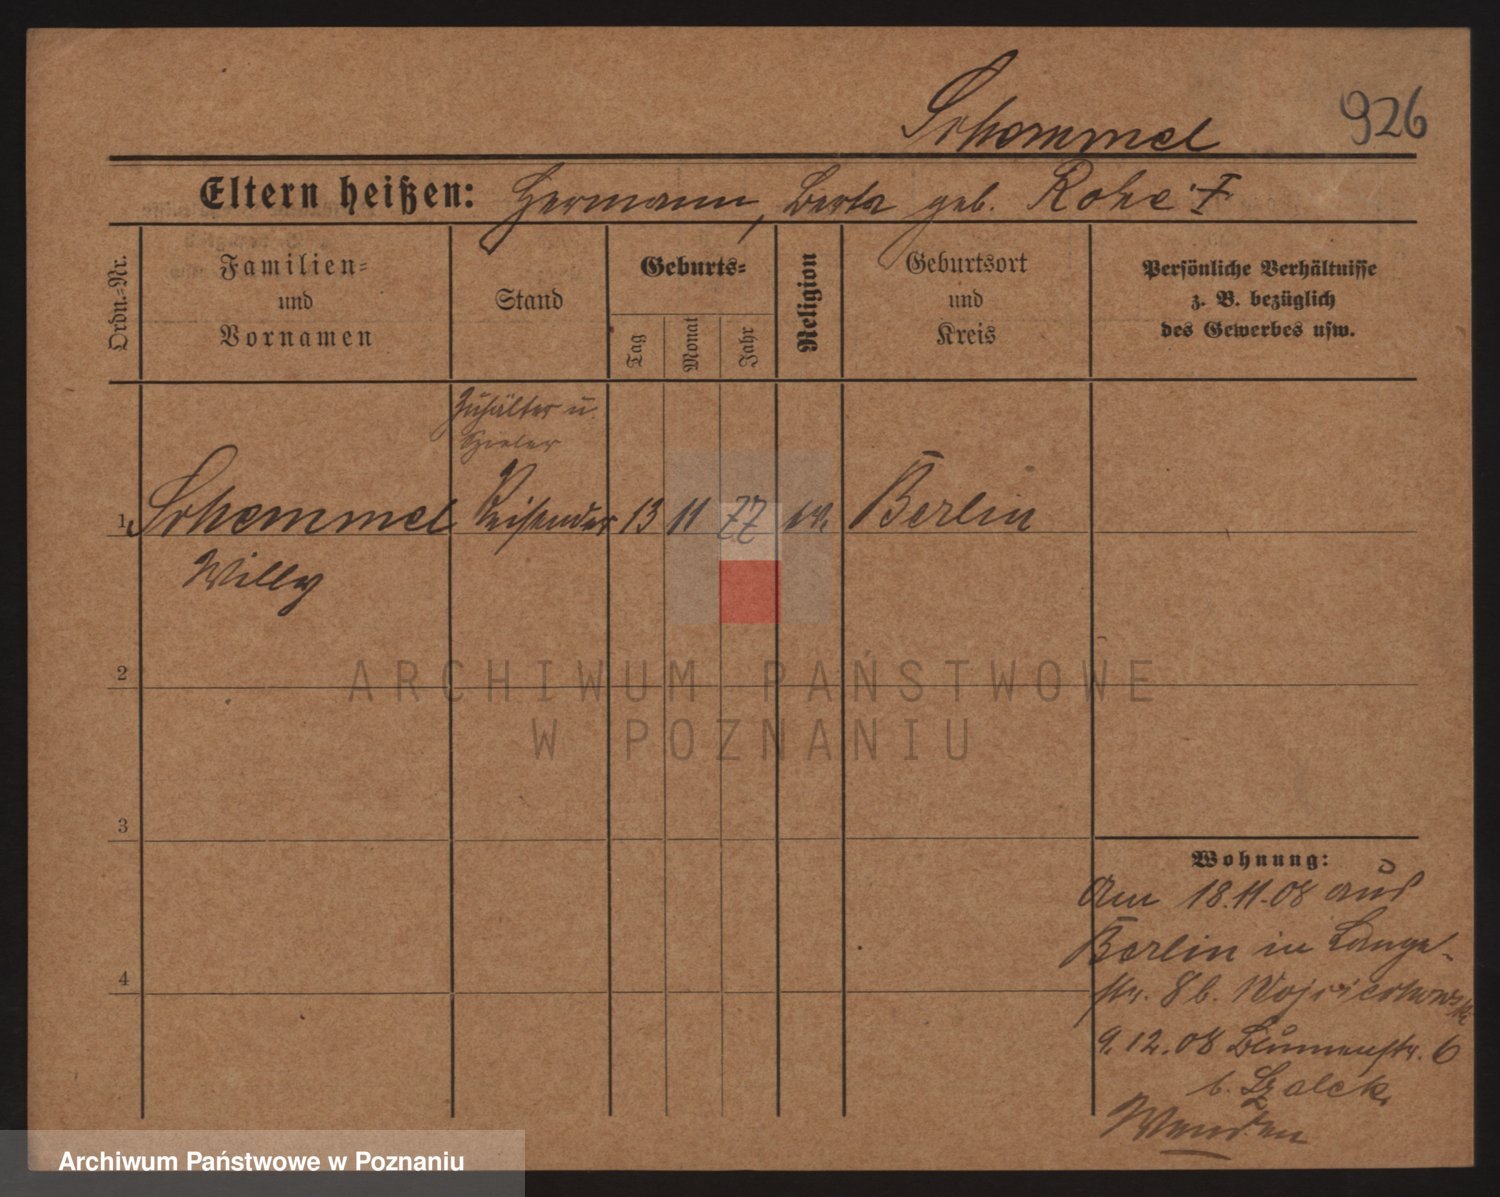 926
Schemmel
Eltern heißen: Hermann, Berta geb. Rohe
Ordn.-Nr.
Familien-
und
Vornamen
Stand
Geburts-
Tag
Monat
Jahr
Religion
Geburtsort
und
Kreis
Persönliche Verhältnisse
z. B. bezüglich
des Gewerbes usw.
Zuhälter u.
Spieler
1 Schemmel Reisender 13 11 77 ev. Berlin
Willy
2
3
4
Wohnung:
Am 18.11.08 aus
Berlin in Lange-
str. 8 b. Wojciechowski
9.12.08 Blumenstr. 6
b.
Wenden
ARCHIWUM PAŃSTWOWE
W POZNANIU
Archiwum Państwowe w Poznaniu